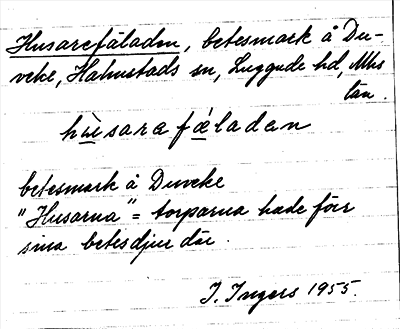 Husarefäladen, betesmark å Du-
veke, Halmstads sn, Luggude hd, Mlhs
län.
hùsarafǽladen
betesmark å Duveke
"Husarna" = torparna hade förr
sina betesdjur där.
I. Ingers 1955.